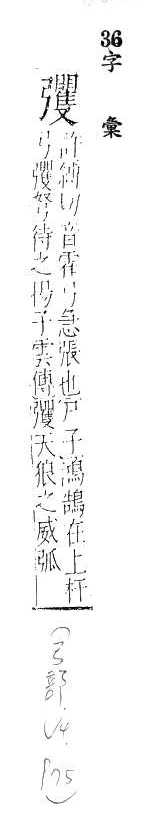 36字彙
彏
許縛切音霍弓急張也尸子鴻鵠在上扜
弓彏弩待之揚子雲傳彏天狼之威弧
(弓部.14.P75)